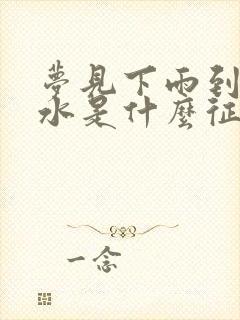 夢見下雨到
水是什麼征
一念